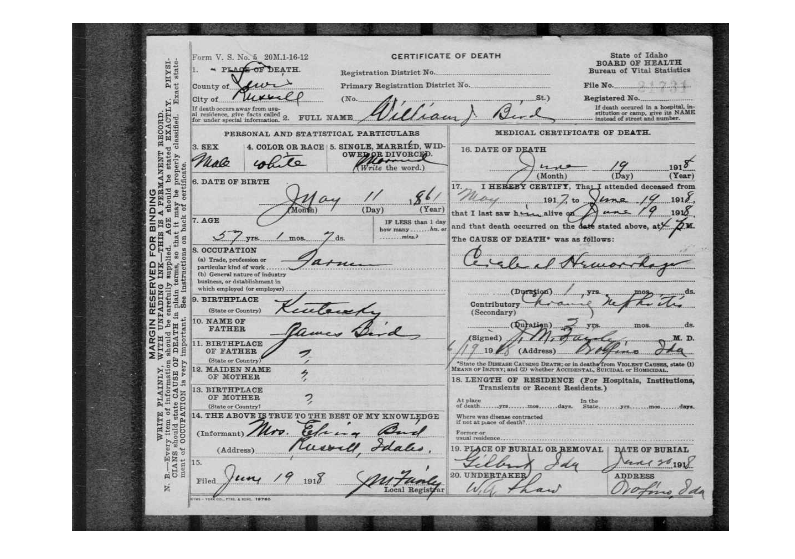 MARGIN RESERVED FOR BINDING
WRITE PLAINLY, WITH UNFADING INK—THIS IS A PERMANENT RECORD.
N. B.—Every item of information should be carefully supplied. AGE should be stated EXACTLY. PHYSI-
CIANS should state CAUSE OF DEATH in plain terms, so that it may be properly classified. Exact state-
ment of OCCUPATION is very important. See instructions on back of certificate.
Form V. S. No. 5 20M.1-16-12
CERTIFICATE OF DEATH
State of Idaho
BOARD OF HEALTH
Bureau of Vital Statistics
1. PLACE OF DEATH.
Registration District No.
County of Lewis
Primary Registration District No.
File No.
City of Russell
(No. St.)
Registered No.
If death occurs away from usu-
al residence, give facts called
for under special information.
If death occured in a hospital, in-
stitution or camp, give its NAME
instead of street and number.
2. FULL NAME William J Bird
PERSONAL AND STATISTICAL PARTICULARS
3. SEX Male
4. COLOR OR RACE white
5. SINGLE, MARRIED, WID-
OWED OR DIVORCED. Married
(Write the word.)
6. DATE OF BIRTH
May 11 1861
(Month) (Day) (Year)
7. AGE
57 yrs. 1 mos. 7 ds.
IF LESS than 1 day
how many hrs. or
mins.?
8. OCCUPATION
(a) Trade, profession or
particular kind of work Farmer
(b) General nature of industry
business, or establishment in
which employed (or employer)
9. BIRTHPLACE
(State or Country) Kentucky
10. NAME OF
FATHER James Bird
11. BIRTHPLACE
OF FATHER ?
(State or Country)
12. MAIDEN NAME
OF MOTHER ?
13. BIRTHPLACE
OF MOTHER ?
(State or Country)
14. THE ABOVE IS TRUE TO THE BEST OF MY KNOWLEDGE
(Informant) Mrs. Bird
(Address) Russell, Idaho.
15.
Filed June 19 1918
Local Registrar
MEDICAL CERTIFICATE OF DEATH.
16. DATE OF DEATH
June 19 1918
(Month) (Day) (Year)
17. I HEREBY CERTIFY, That I attended deceased from
May 1917, to June 19 1918
that I last saw him alive on June 19 1918
and that death occurred on the date stated above, at 4 P M.
The CAUSE OF DEATH* was as follows:
Cerebral Hemorrhage
(Duration) 1 yrs. mos. ds.
Contributory Chronic Nephritis
(Secondary)
(Duration) yrs. mos. ds.
(Signed) M. D.
6/19 1918 (Address) Orofino Ida
*State the DISEASE CAUSING DEATH; or in deaths from VIOLENT CAUSES, state (1)
MEANS OF INJURY; and (2) whether ACCIDENTAL, SUICIDAL OR HOMICIDAL.
18. LENGTH OF RESIDENCE (For Hospitals, Institutions,
Transients or Recent Residents.)
At place
of death yrs. mos. days.
In the
State yrs. mos. days.
Where was disease contracted
if not at place of death?
Former or
usual residence
19. PLACE OF BURIAL OR REMOVAL
Gilbert Ida
DATE OF BURIAL
June 20 1918
20. UNDERTAKER
W.A. Shaw
ADDRESS
Orofino, Ida